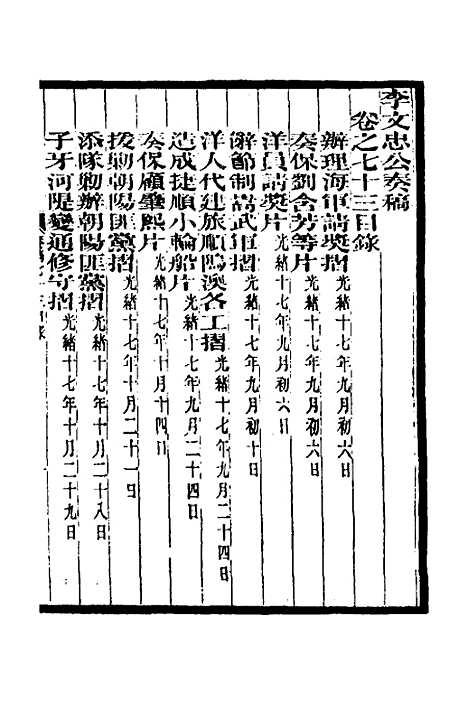 李文忠公奏稿
卷之七十三目錄
辦理海軍請獎摺 光緒十七年九月初六日
奏保劉含芳等片 光緒十七年九月初六日
洋員請獎片 光緒十七年九月初六日
辭節制嵩武軍摺 光緒十七年九月初十日
洋人代建旅順隖澳各工摺 光緒十七年九月二十四日
造成捷順小輪船片 光緒十七年九月二十四日
奏保顧肇熙片 光緒十七年十月十四日
拨勦朝陽匪黨摺 光緒十七年十月二十一日
添隊勦辦朝陽匪黨摺 光緒十七年十月二十八日
子牙河隄變通修守摺 光緒十七年十月二十九日